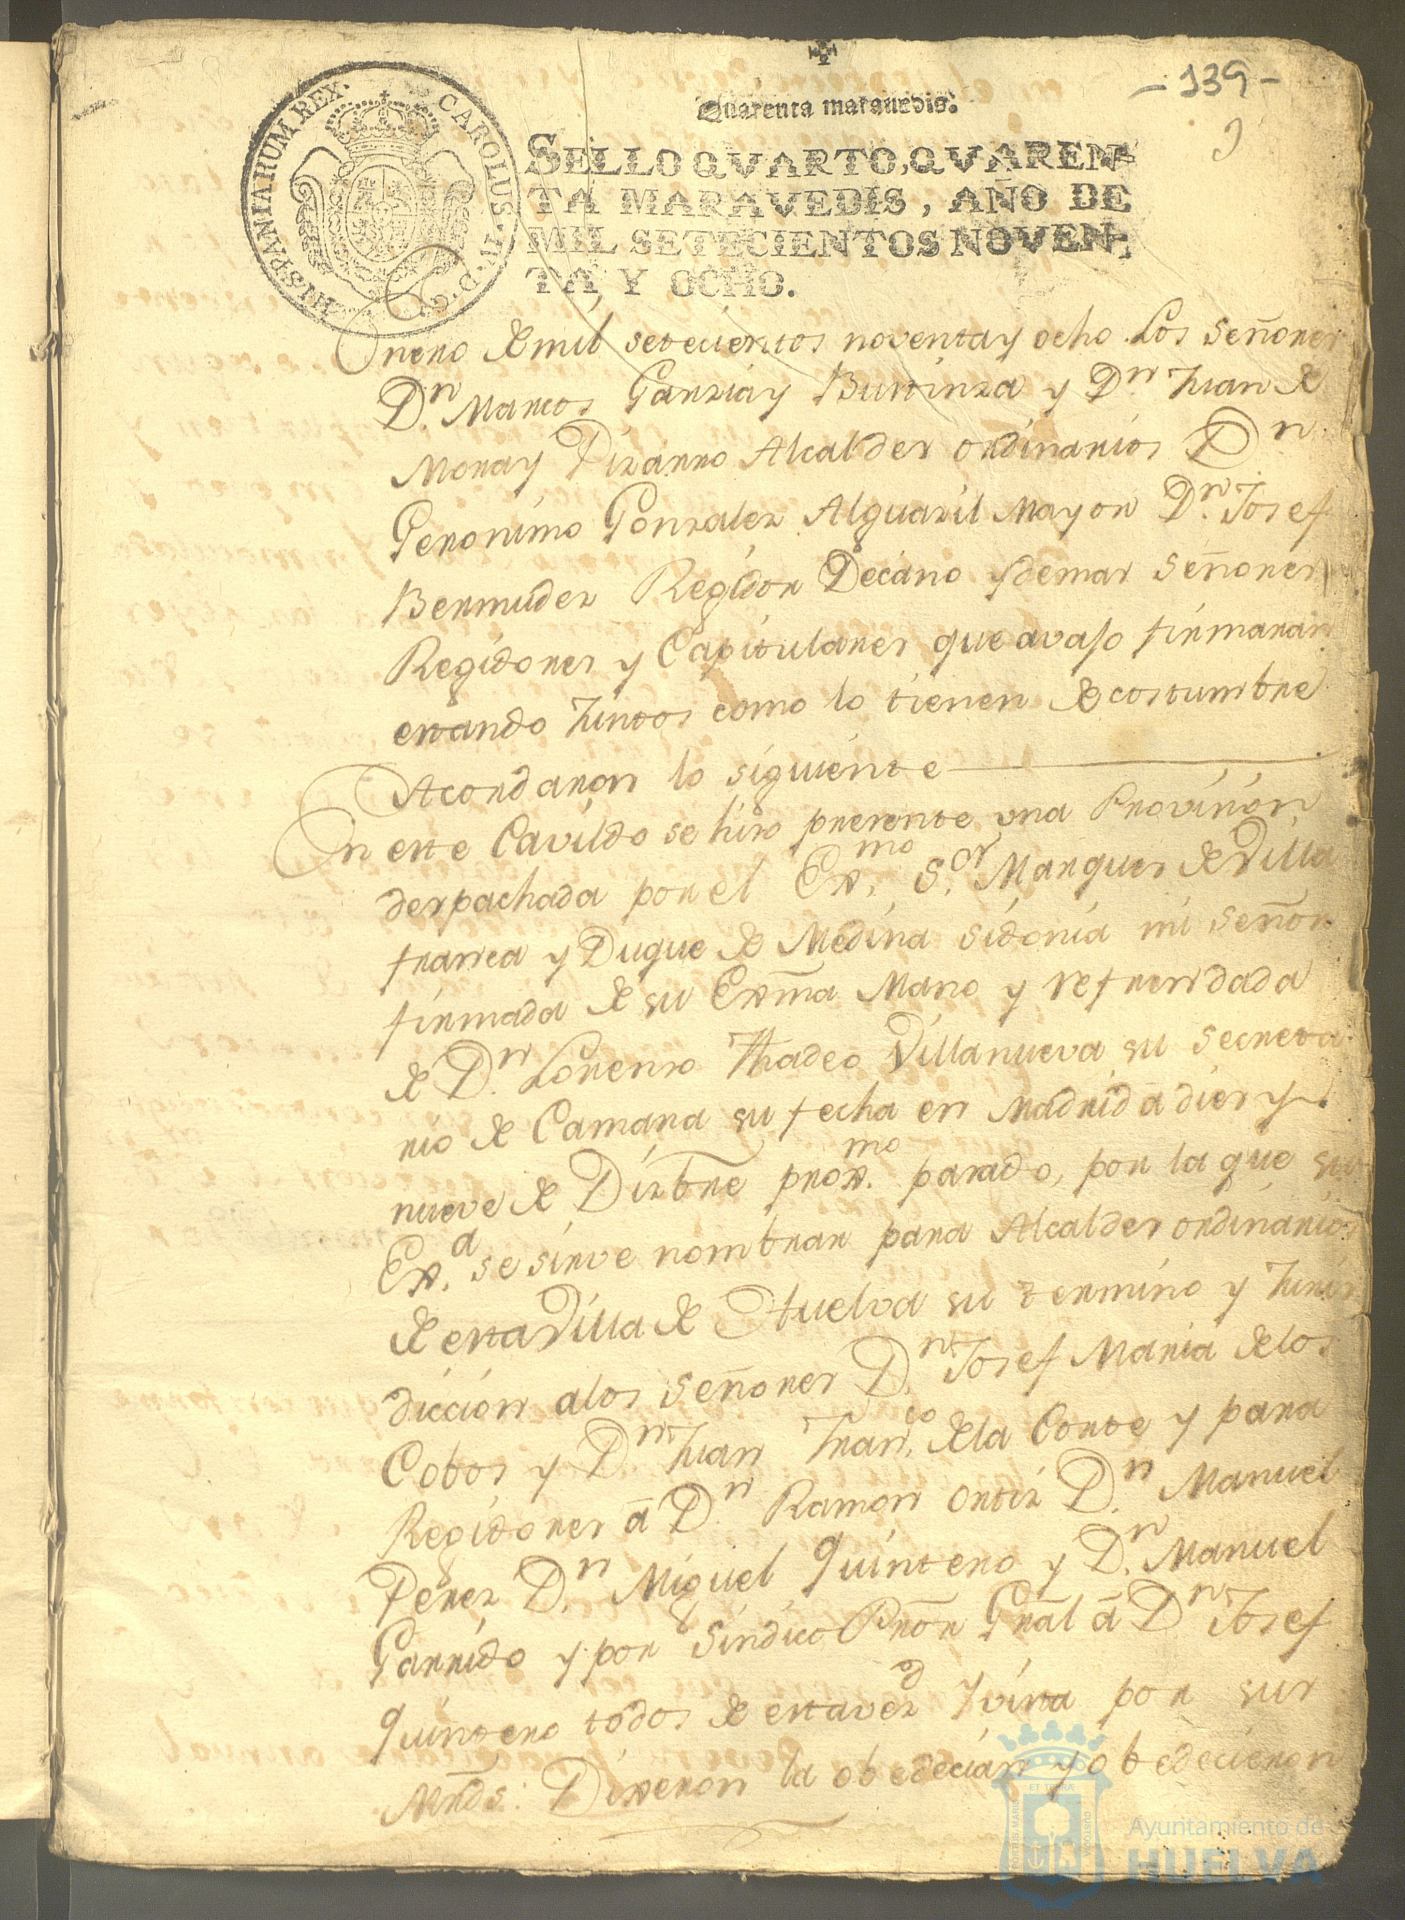 - 139 -
Quarenta marauedis.
SELLO QVARTO, QVAREN-
TA MARAVEDIS, AÑO DE
MIL SETECIENTOS NOVEN-
TA Y OCHO.
CAROLUS IV D G HISPANIARUM REX
Enero de mil setecientos noventa y ocho Los Señores
Dn. Marcos Garzia y Burrinza y Dn. Juan de
Mora y Pizarro Alcaldes ordinarios Dn.
Geronimo Gonzalez Alguazil Mayor Dn. Josef
Bermudez Regidor Decano y demas Señores
Regidores y Capitulares que avajo firmaran
estando Juntos como lo tienen de costumbre
Acordaron lo siguiente
En este Cavildo se hizo presente una Provision
despachada por el Exmo. Sor. Marques de Villa
franca y Duque de Medina Sidonia mi Señor
firmada de su Exma Mano y refrendada
de Dn. Lorenzo Thadeo Villanueva su Secreta
rio de Camara su fecha en Madrid á diez y
nueve de Dizbre proxmo. pasado, por la que su
Exa. se sirve nombrar para Alcaldes ordinarios
de esta Villa de Huelva su termino y Juris
diccion a los Señores Dn. Josef Maria de los
Cobos y Dn. Juan Franco. de la Corte y para
Regidores á Dn. Ramon Ortiz Dn. Manuel
Perez Dn. Miguel Quintero y Dn. Manuel
Garrido y por Sindico Pror Gral á Dn. Josef
Quintero todos de esta vezd y vista por sus
Mrds: Dixeron la obedecian y obedecieron
Ayuntamiento de
HUELVA